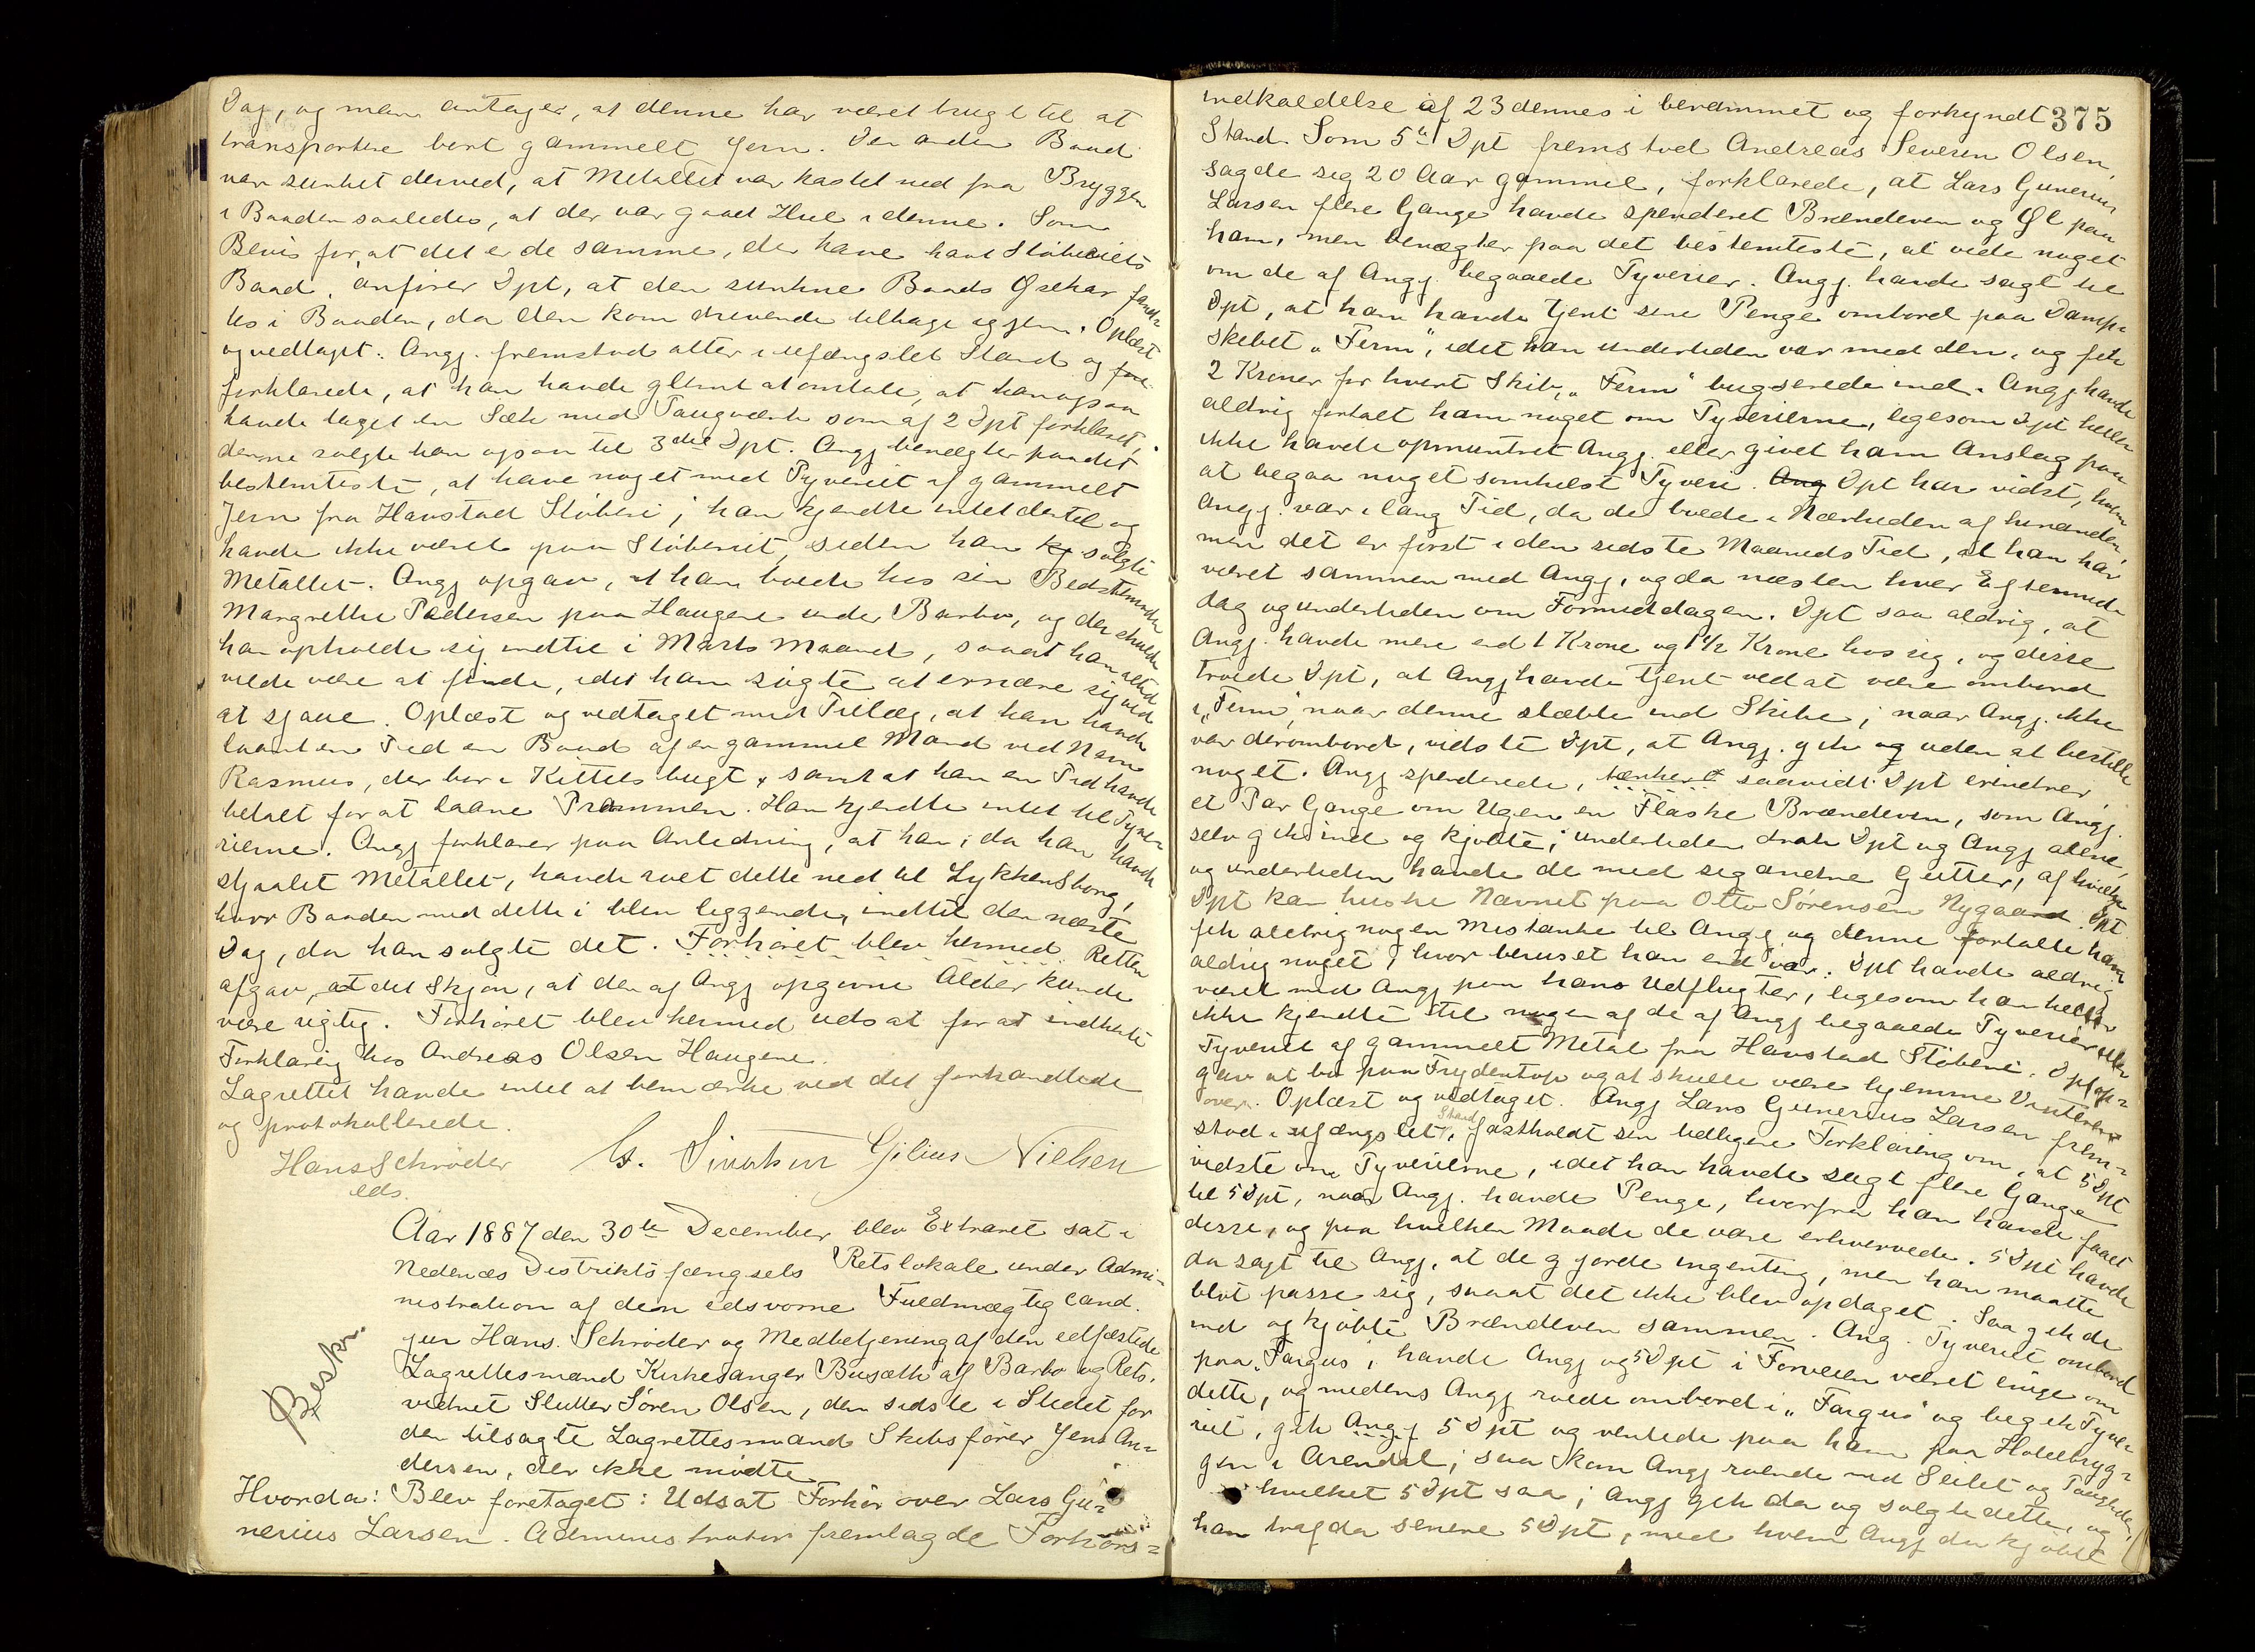 Dag, og man antager, at denne har været brugt til at
transportere bort gammelt Jern. Den anden Baad
var sunket derved, at Metallet var kastet ned fra Bryggen
i Baaden saaledes, at der var gaaet Hul i denne. Som
Bevis for, at det er de samme, der have havt Støberiets
Baad, anfører Dpt, at den sunkne Baads Øsekar fand-
tes i Baaden, da den kom drivende tilbage igjen. Oplæst
og vedtaget. Angj. fremstod atter i ufængslet Stand og for
forklarede, at han havde glemt at omtale, at han ogsaa
havde taget en Sæk med Taugværk som af 2 Dpt forklaret,
denne solgte han ogsaa til 3die Dpt. Angj benægter paa det
bestemteste, at have noget med Tyveriet af gammelt
Jern fra Havstad Støberi; han kjendte intet dertil og
havde ikke været paa Støberiet, siden han kj solgte
Metallet. Angj opgav, at han boede hos sin Bedstemoder
Margrethe Pedersen paa Haugene under Barbo, og der skulde
han opholde sig indtil i Marts Maaned, saaat han altid
vilde være at finde, idet han søgte at ernære sig ved
at sjaue. Oplæst og vedtaget med Tillæg, at han havde
laant en Tid en Baad af en gammel Mand ved Navn
Rasmus, der bor i Kittelsbugt, samt at han en Tid havde
betalt for at laane Prammen. Han kjendte intet til Tyve-
rierne. Angj forklarer paa Anledning, at han, da han havde
stjaalet Metallet, havde roet dette ned til Lykkensborg,
hvor Baaden med dette i blev liggende, indtil den næste
Dag, da han solgte det. Forhøret blev hermed Retten
afgav at det Skjøn, at den af Angj opgivne Alder kunde
være rigtig. Forhøret blev hermed udsat for at indhente
Forklaring hos Andreas Olsen Haugene.
Lagrettet havde intet at bemærke ved det forhandlede
og protokollerede.
Hans Schrøder Gilius Nielsen
eds.
Aar 1887 den 30te December blev Extraret sat i
Nedenæs Distriktsfængsels Retslokale under Admi-
nistration af den edsvorne Fuldmægtig cand.
jur Hans Schrøder og Medbetjening af den edfæstede
Lagrettesmand Kirkesanger Busæth af Barbo og Rets-
vidnet Slutter Søren Olsen, den sidste i Stedet for
den tilsagte Lagrettesmand Skibsfører Jens An-
dersen, der ikke mødte
Beskr.
Hvorda: Blev foretaget: Udsat Forhør over Lars Gu-
nerius Larsen. Administrator fremlagde Forhørs-
375
indkaldelse af 23 dennes i berammet og forkyndt
Stand. Som 5te Dpt fremstod Andreas Severin Olsen,
sagde sig 20 Aar gammel, forklarede, at Lars Gunerius
Larsen flere Gange havde spenderet Brændevin og Øl paa
ham, men benægter paa det bestemteste, at vide noget
om de af Angj. begaaede Tyverier. Angj. havde sagt til
Dpt, at han havde tjent sine Penge ombord paa Damp-
skibet "Ferm", idet han undertiden var med den, og fik
2 Kroner for hvert Skib, "Ferm" bugserede ind. Angj havde
aldrig fortalt ham noget om Tyverierne, ligesom Dpt heller
ikke havde opmuntret Angj. eller givet ham Anslag paa
at begaa noget somhelst Tyveri. Ang Dpt har vidst, hvem
Angj. var i lang Tid, da de boede i Nærheden af hinanden,
men det er først i den sidste Maaneds Tid, at han har
været sammen med Angj, og da næsten hver Eftermid-
dag og undertiden om Formiddagen. Dpt saa aldrig, at
Angj. havde mere end 1 Krone og 1 1/2 Krone hos sig, og disse
troede Dpt, at Angj havde tjent ved at være ombord
i "Ferm", naar denne slæbte ind Skibe; naar Angj. ikke
var derombord, vidste Dpt, at Angj. gik og uden at bestille
noget. Angj spenderede, saavidt Dpt erindrer,
et Par Gange om Ugen en Flaske Brændevin, som Angj.
selv gik ind og kjøbte; undertiden drak Dpt og Angj alene,
og undertiden havde de med sig andre Gutter, af hvilke
Dpt kan huske Navnet paa Otto Sørensen Nygaard. Dpt
fik aldrig nogen Mistanke til Angj og denne fortalte ham
aldrig noget, hvor beruset han end var. Dpt havde aldrig
været med Angj paa hans Udflugter, ligesom han heller
ikke kjendte til nogen af de af Angj begaaede Tyverier eller
Tyveriet af gammelt Metal fra Havstad Støberi. Dpt op-
gav at bo paa Frydentop og at skulle være hjemme Vinteren
over. Oplæst og vedtaget. Angj Lars Gunerius Larsen frem-
stod i ufængslet Stand, fastholdt sin tidligere Forklaring om, at 5 Dpt
vidste om Tyverierne, idet han havde sagt flere Gange
til 5 Dpt, naar Angj. havde Penge, hvorfra han havde faaet
disse, og paa hvilken Maade de vare erhvervede. 5 Dpt havde
da sagt til Angj, at de gjorde ingenting, men han maatte
blot passe sig, saaat det ikke blev opdaget. Saa gik de
ind og kjøbte Brændevin sammen. Ang. Tyveriet ombord
paa "Fargus", havde Angj og 5 Dpt i Forveien været enige om
dette, og medens Angj roede ombord i "Fargus" og begik Tyve-
riet, gik Angj 5 Dpt og ventede paa ham paa Hotelbryg-
gen i Arendal; saa kom Angj roende med Seilet og Taugenden,
hvilket 5 Dpt saa; Angj gik da og solgte dette, og
han traf da senere 5 Dpt, med hvem Angj da kjøbte